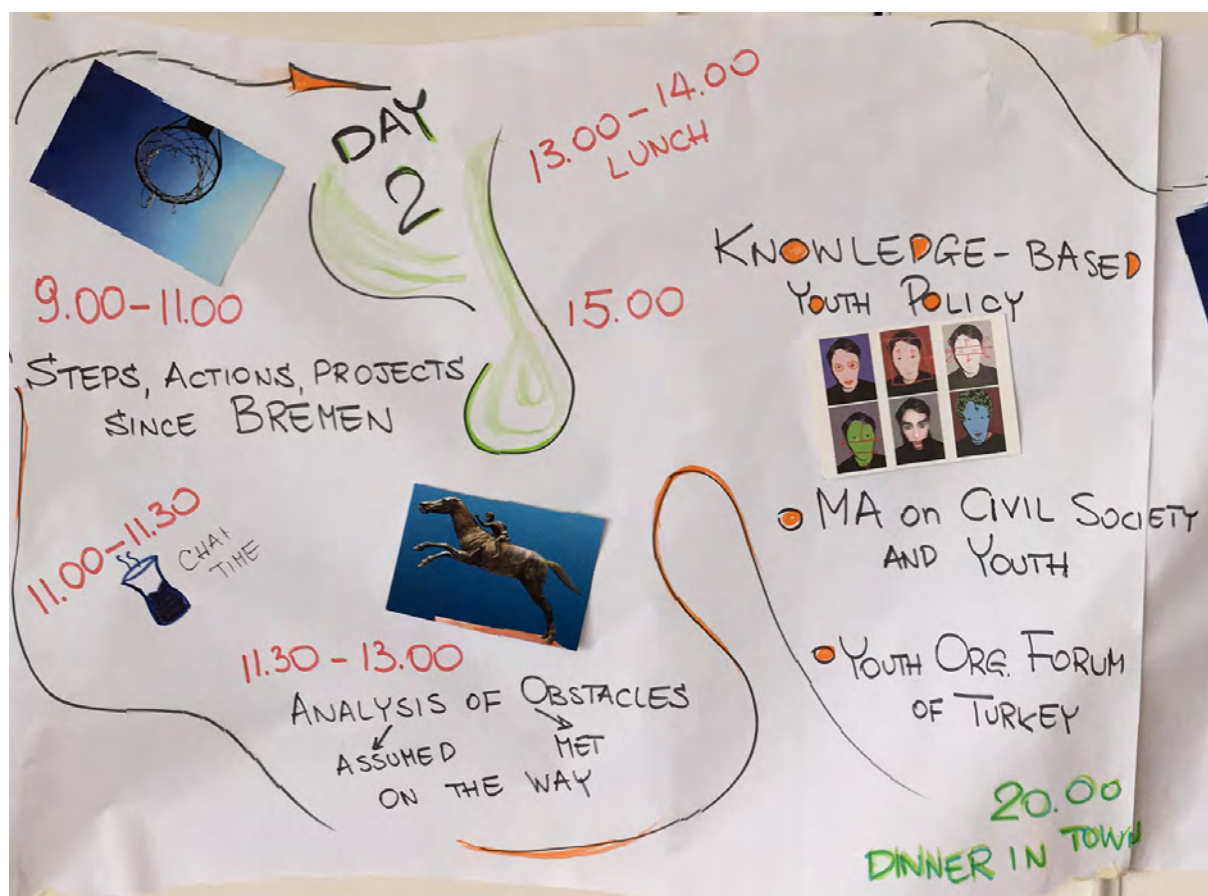 DAY
2
9.00-11.00
STEPS, ACTIONS, PROJECTS
SINCE BREMEN
11.00-11.30
CHAI
TIME
11.30-13.00
ANALYSIS OF OBSTACLES
ASSUMED MET
ON THE WAY
13.00-14.00
LUNCH
15.00
KNOWLEDGE-BASED
YOUTH POLICY
MA on CIVIL SOCIETY
AND YOUTH
YOUTH ORG. FORUM
OF TURKEY
20.00
DINNER IN TOWN